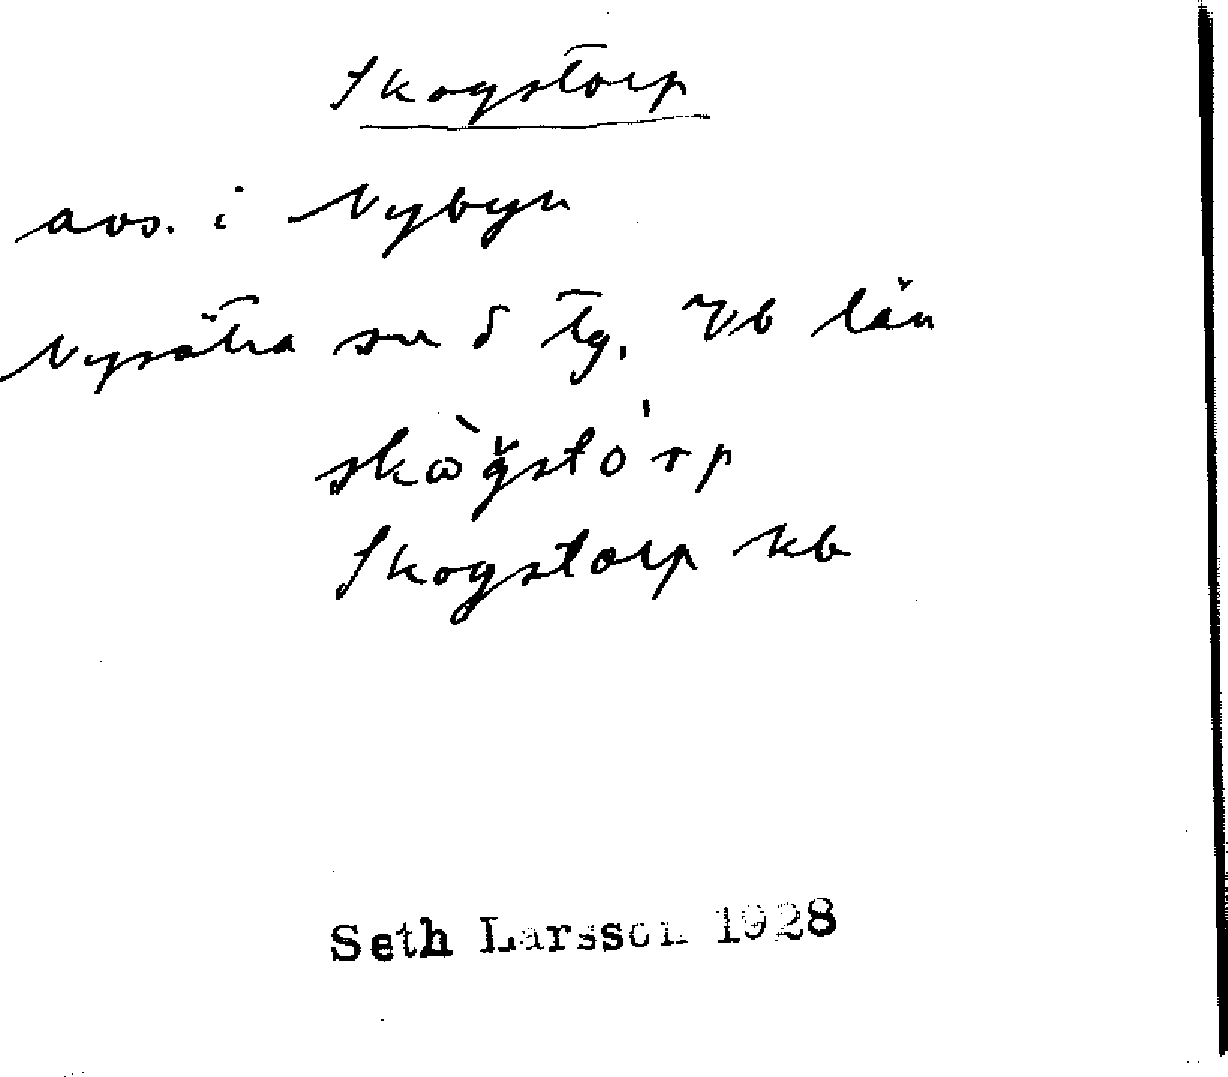 Skogstorp
avs. i Nybyn
Nysätra sn S tg. Vb län
skògstórp
Skogstorp kb
Seth Larsson 1928